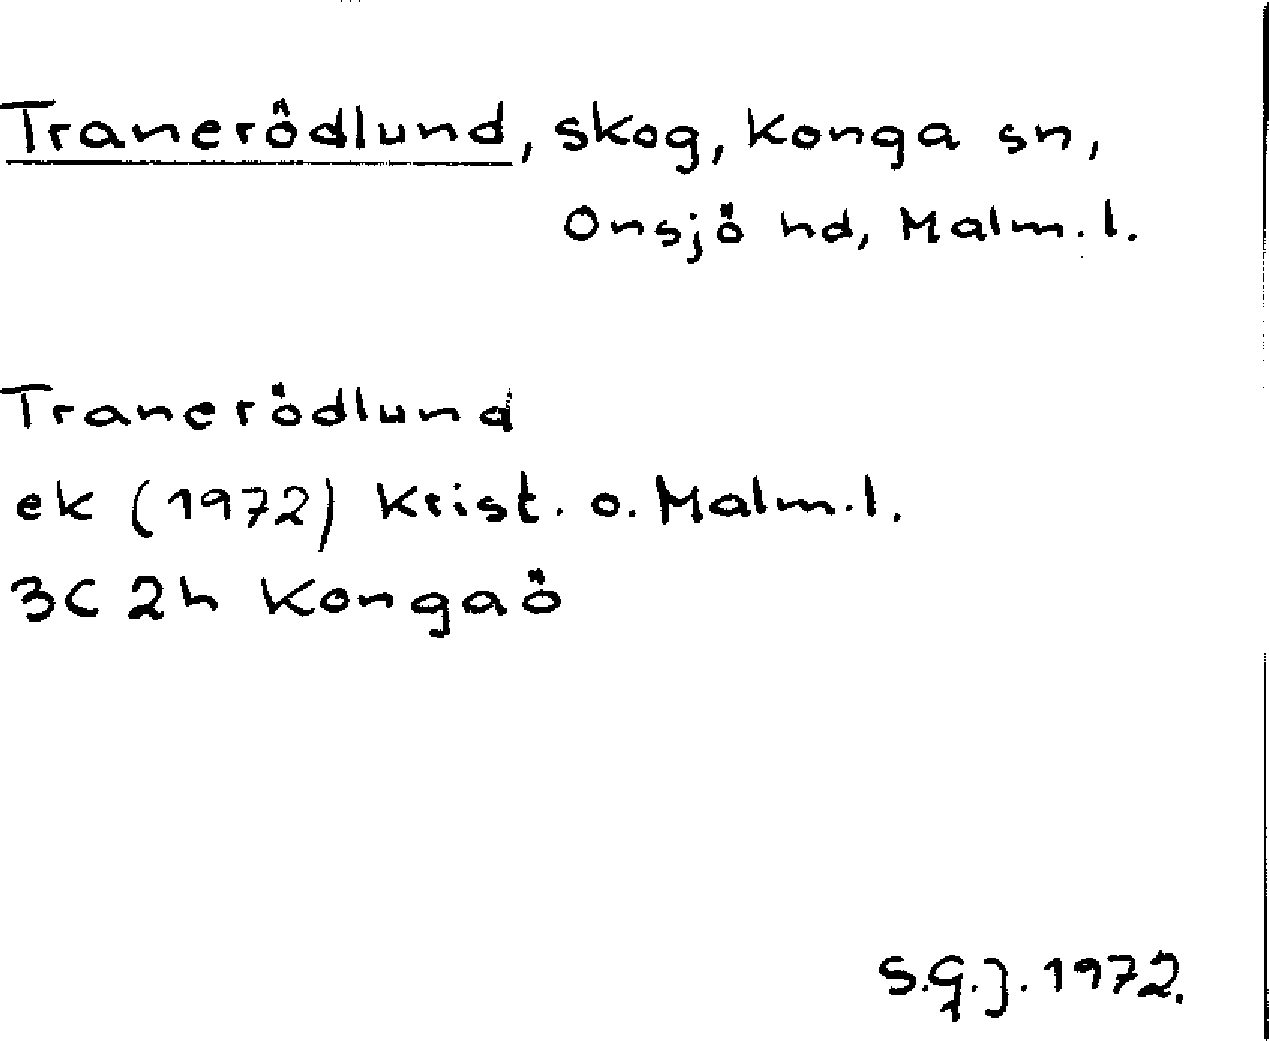 Tranerödlund, skog, Konga sn,
Onsjö hd, Malm.l.
Tranerödlund
ek (1972) Krist. o. Malm.l.
3C 2h Kongaö
S.G.J. 1972.